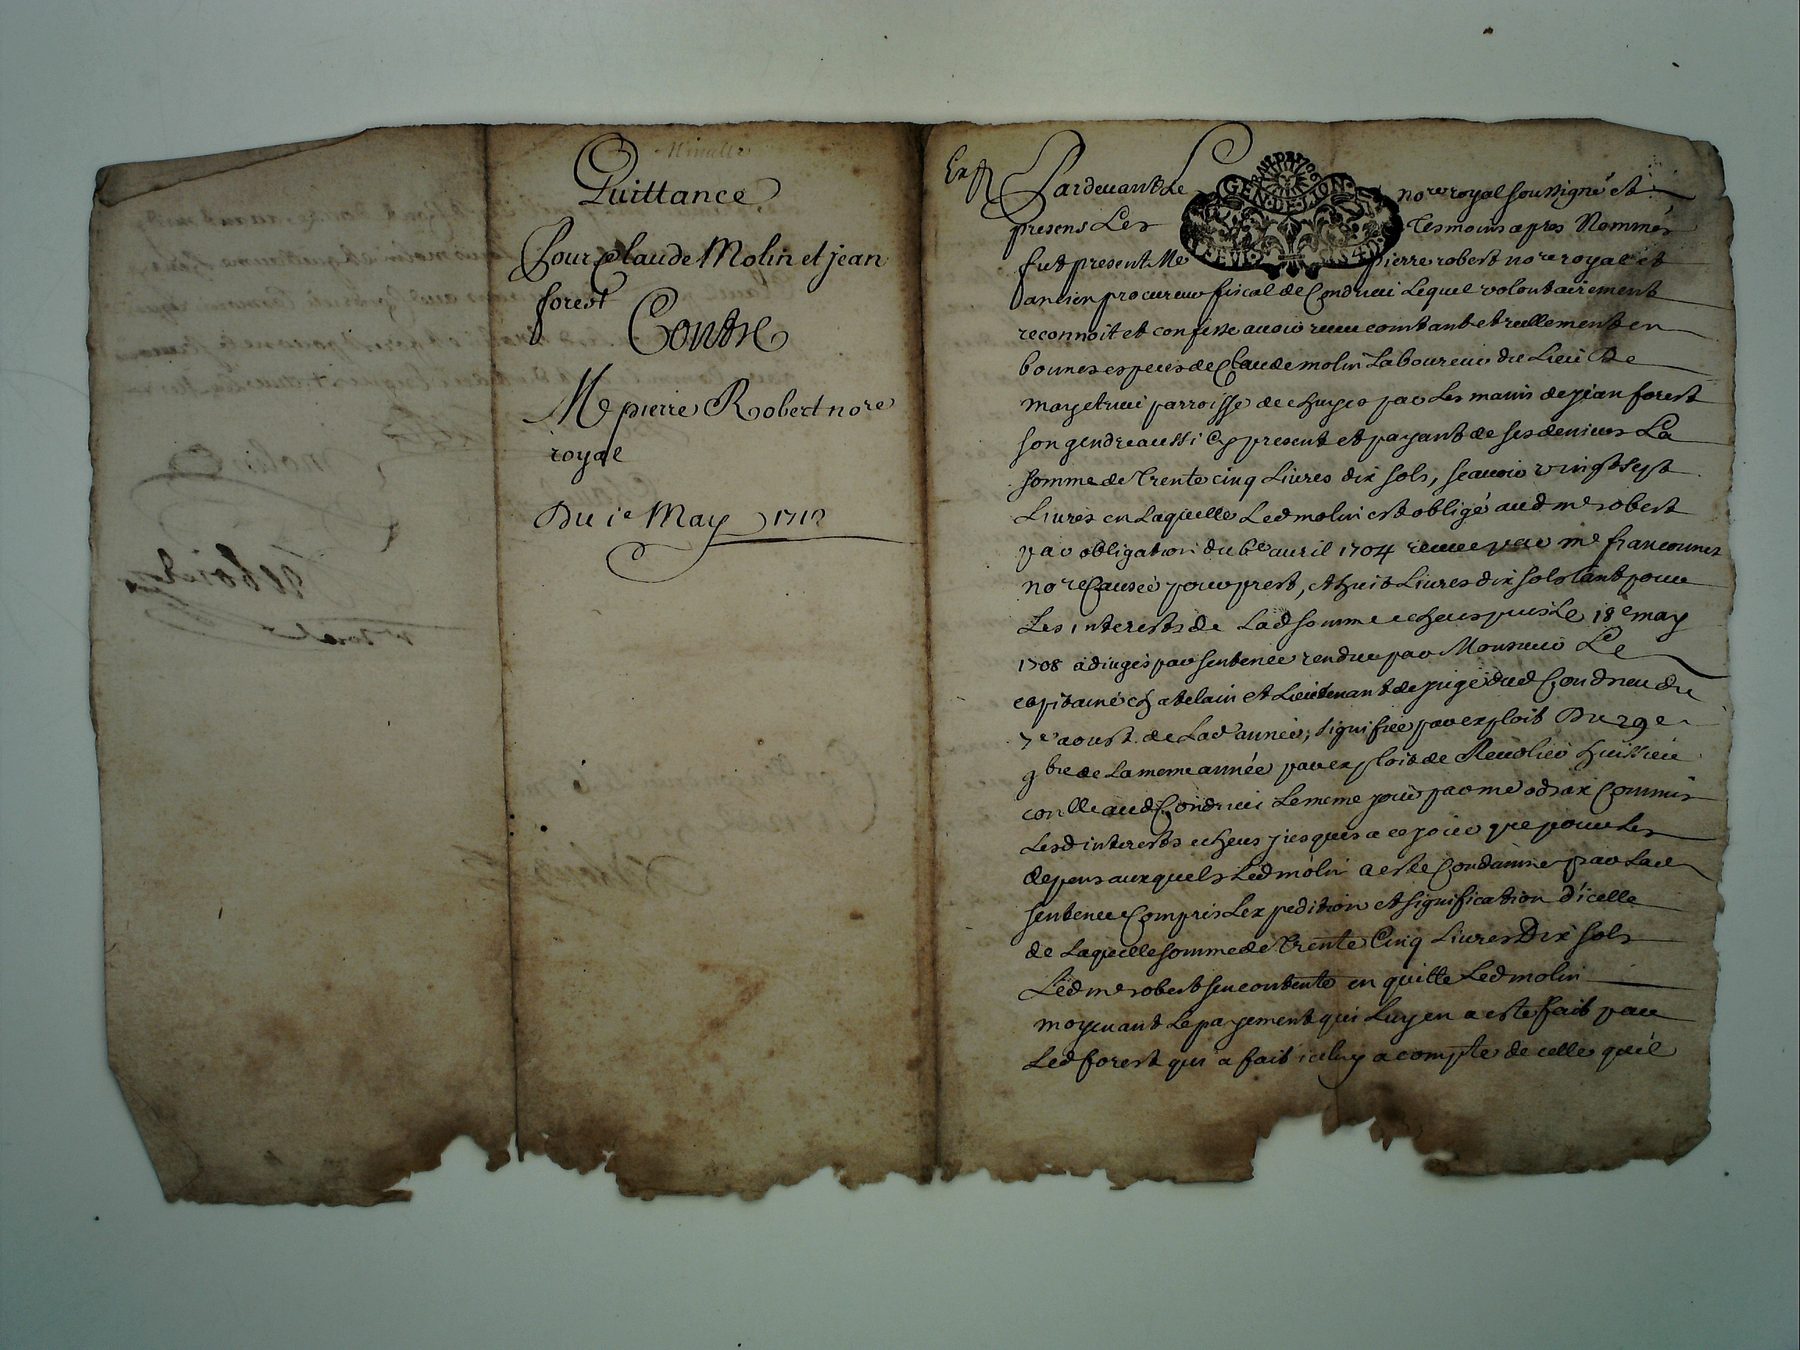 Minutte
Quittance
Pour Claude Molin et jean
forest
Contre
Me pierre Robert nore
royal
Du 1e May 1712
Exp
Pardevant Le nore royal soussigné et
presens Les tesmoins apres Nommés
fut present Me pierre robert nore royal et
ancien procureur fiscal de Condrieu Lequel volontairement
reconnoit et confesse avoir receu comtant et reellement en
bonnes especes de Claude molin Laboureur du Lieu De
parroisse de chuyes par Les mains de jean forest
son gendre aussi Cy present et payant de ses deniers La
somme de trente cinq Livres dix sols, scavoir vingt sept
Livres en Laquelle Led molin est obligé aud me robert
par obligation du 6e avril 1704 receue par me
nore Causée pour prest, et huit Livres dix sols tant pour
Les interests de Lad somme echeus puis Le 18e may
1708 adjugés par sentence rendue par Monsieur Le
capitaine chatelain et Lieutenant de juge dud Condrieu du
7e aoust de Lad année, signifiée par exploit Du 29e
9bre de La meme année par exploit de huissier
conllé aud Condrieu Le meme jour par me Commis
Lesd interests echeus jusques a ce jour que pour Les
depens auxquels Led molin a esté Condamné par Lad
sentence Compris Lexpedition et signification d'icelle
de Laquelle somme de trente Cinq Livres Dix sols
Led me robert sen contente en quitte Led molin
moyenant Le payement qui Luy en a esté fait par
Led forest qui a fait iceluy a compte de celle qu'il